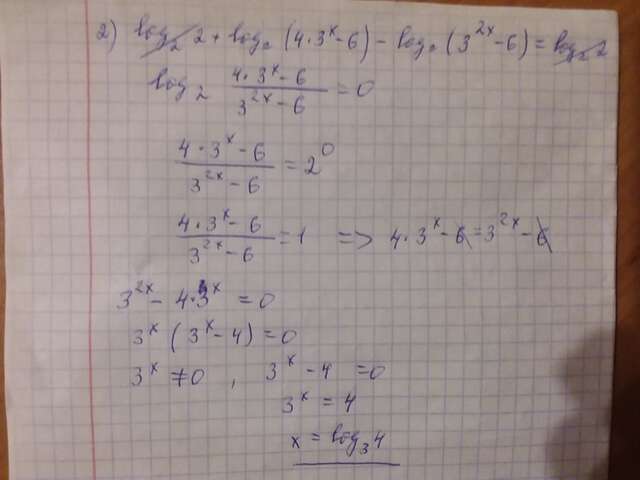 2) log₂2 + log₂(4·3ˣ-6) - log₂(3²ˣ-6) = log₂2
log₂ (4·3ˣ-6)/(3²ˣ-6) = 0
(4·3ˣ-6)/(3²ˣ-6) = 2⁰
(4·3ˣ-6)/(3²ˣ-6) = 1 => 4·3ˣ-6 = 3²ˣ-6
3²ˣ - 4·3ˣ = 0
3ˣ (3ˣ-4) = 0
3ˣ ≠ 0 , 3ˣ - 4 = 0
3ˣ = 4
x = log₃4